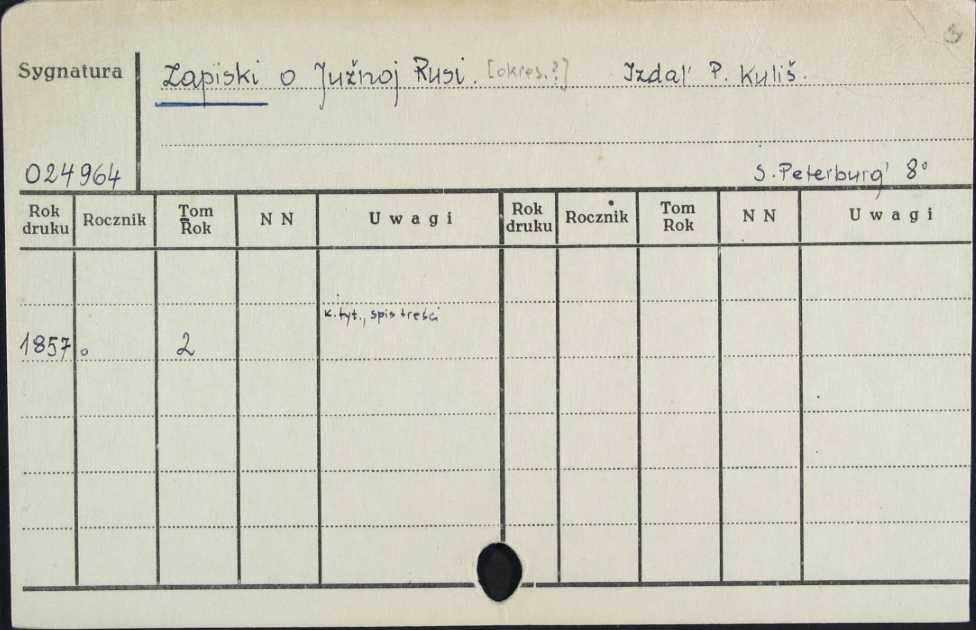 Sygnatura
Zapiski o Južnoj Rusi. [okres.?] Izdal' P. Kuliš.
024964
S. Peterburg' 8°
Rok druku Rocznik Tom Rok N N Uwagi Rok druku Rocznik Tom Rok N N Uwagi
k. tyt., spis treści
1857 2